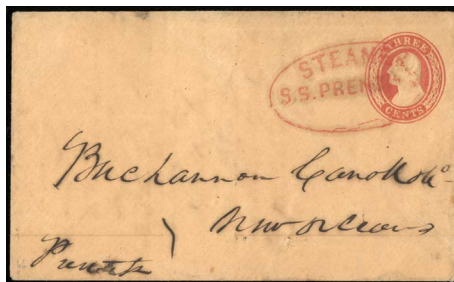 STEAM
S.S. PREN
THREE
CENTS
Buchannon Carroll & Co
New Orleans